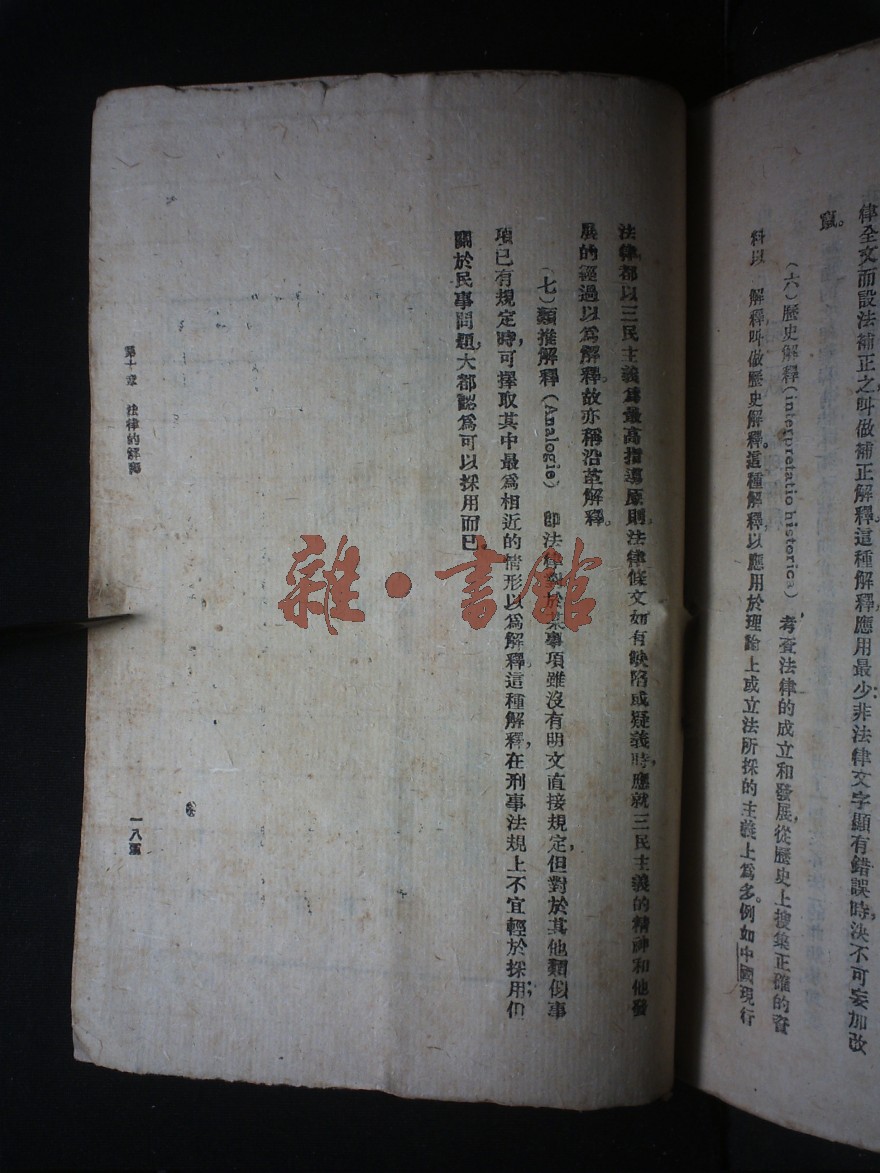 律全文而設法補正之叫做補正解釋。這種解釋，應用最少；非法律文字顯有錯誤時，決不可妄加改
竄。
（六）歷史解釋（interpretatio historica）　考查法律的成立和發展，從歷史上搜集正確的資
料以　解釋，叫做歷史解釋。這種解釋，以應用於理論上或立法所採的主義上爲多。例如中國現行
法律，都以三民主義爲最高指導原則。法律條文如有缺陷或疑義時，應就三民主義的精神和他發
展的經過以爲解釋。故亦稱沿革解釋。
（七）類推解釋（Analogie）　即法律對於某事項雖沒有明文直接規定，但對於其他類似事
項已有規定時，可擇取其中最爲相近的情形以爲解釋。這種解釋，在刑事法規上不宜輕於採用；但
關於民事問題，大都認爲可以採用而已。
第十章　法律的解釋
一八五
雜·書館